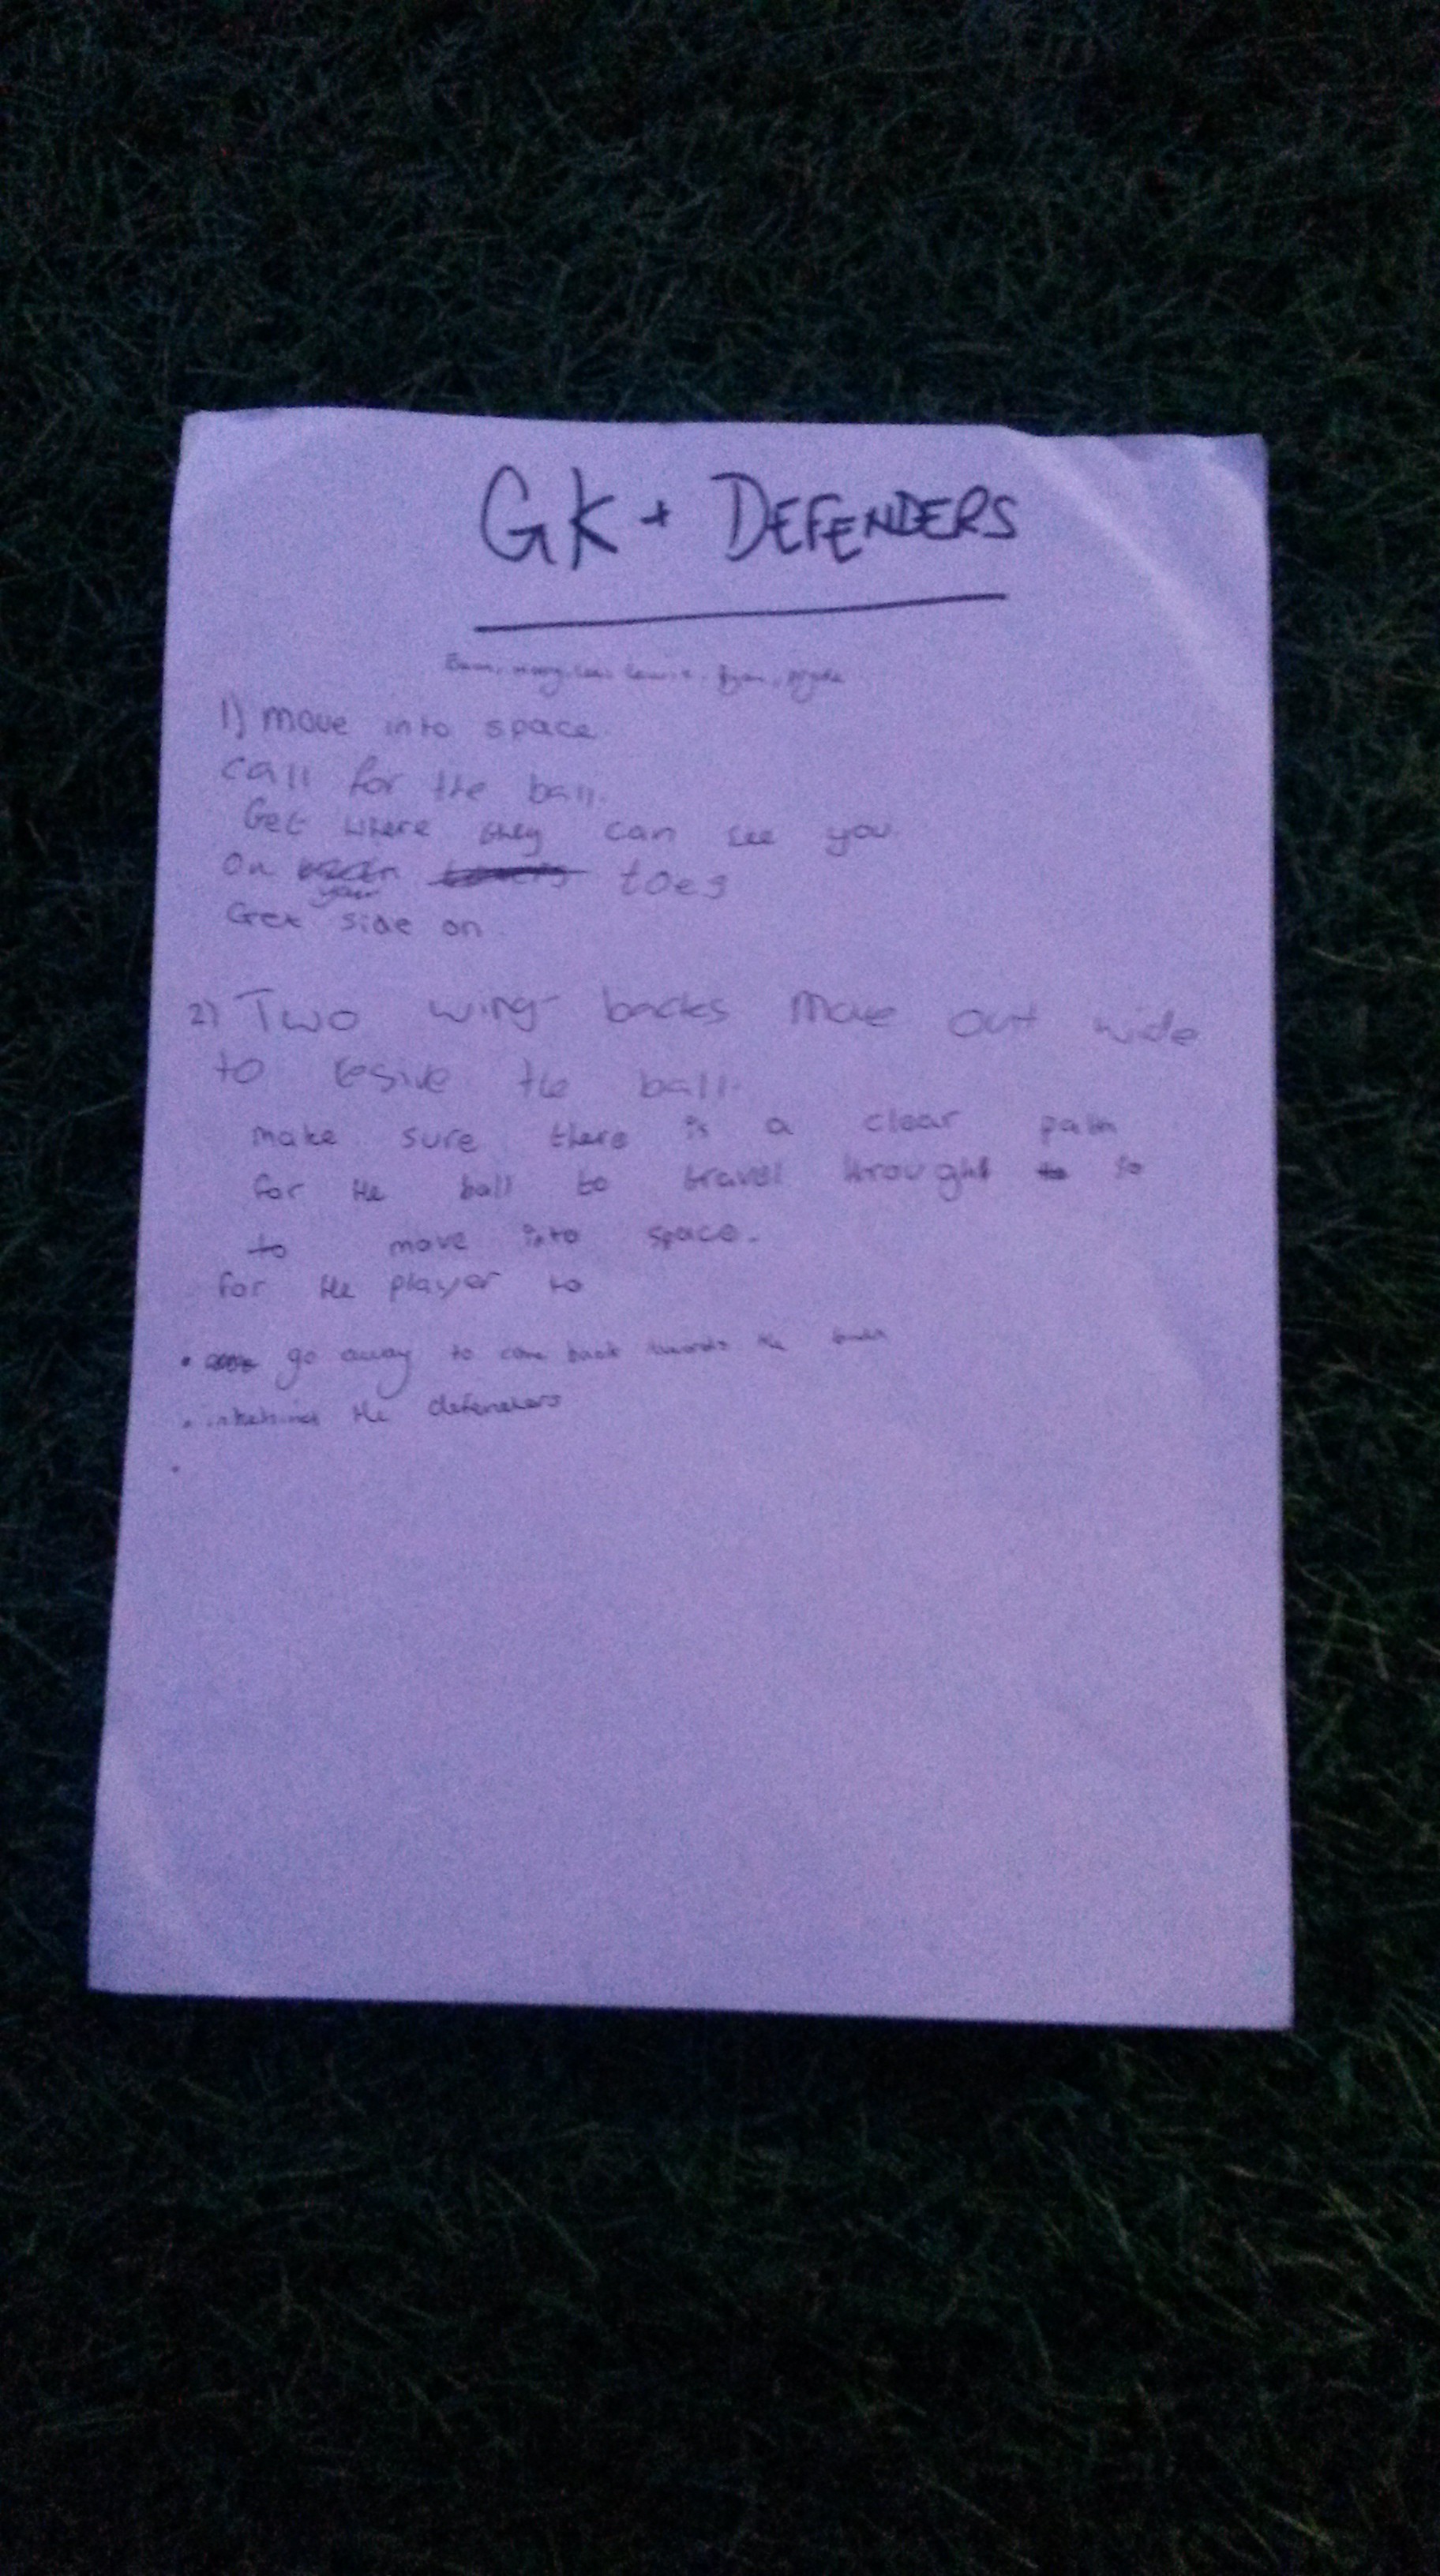 GK + DEFENDERS
1) move into space.
call for the ball.
Get where they can see you
On your toes
Get side on.
2) Two wing backs move out wide
to resive the ball.
make sure there is a clear path
for the ball to travel throught to so
to move into space.
for the player to
• go away to come back towards the
• inbehind the defenders
•